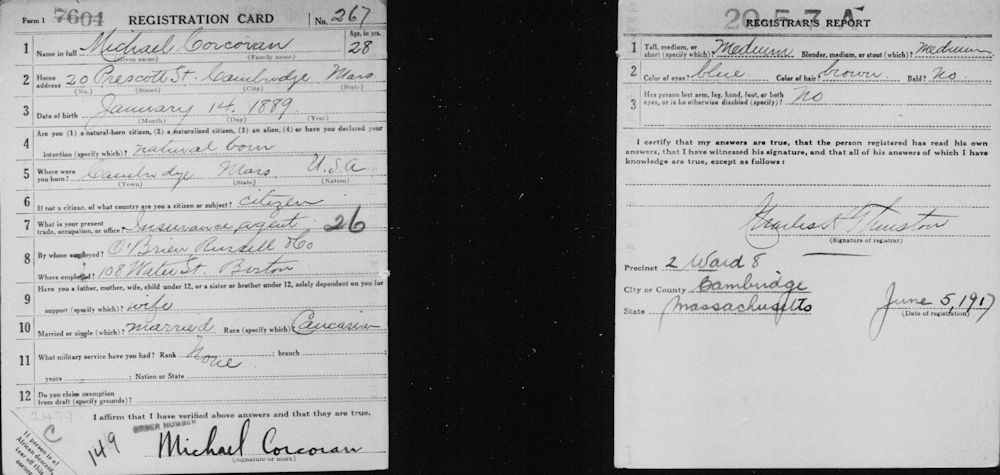 Form 1 7601 REGISTRATION CARD No. 267
1 Name in full Michael Corcoran Age, in yrs. 28
(Given name) (Family name)
2 Home address 20 Prescott St. Cambridge Mass
(No.) (Street) (City) (State)
3 Date of birth January 14, 1889
(Month) (Day) (Year)
4 Are you (1) a natural-born citizen, (2) a naturalized citizen, (3) an alien, (4) or have you declared your
intention (specify which)? natural born
5 Where were you born? Cambridge Mass U.S.A
(Town) (State) (Nation)
6 If not a citizen, of what country are you a citizen or subject? citizen
7 What is your present trade, occupation, or office? Insurance agent 26
8 By whom employed? O'Brien Russell & Co
Where employed? 108 Water St. Boston
9 Have you a father, mother, wife, child under 12, or a sister or brother under 12, solely dependent on you for
support (specify which)? wife
10 Married or single (which)? married Race (specify which)? Caucasian
11 What military service have you had? Rank None ; branch ;
years ; Nation or State
12 Do you claim exemption from draft (specify grounds)?
I affirm that I have verified above answers and that they are true.
C
149 ORDER NUMBER
Michael Corcoran
(Signature or mark)
If person is of
African descent,
tear off this
corner.
REGISTRAR'S REPORT
1 Tall, medium, or short (specify which)? Medium Slender, medium, or stout (which)? medium
2 Color of eyes? blue Color of hair? brown Bald? No
3 Has person lost arm, leg, hand, foot, or both eyes, or is he otherwise disabled (specify)? No
I certify that my answers are true, that the person registered has read his own
answers, that I have witnessed his signature, and that all of his answers of which I have
knowledge are true, except as follows:
Charles A Thurston
(Signature of registrar)
Precinct 2 Ward 8
City or County Cambridge
State Massachusetts June 5, 1917
(Date of registration)